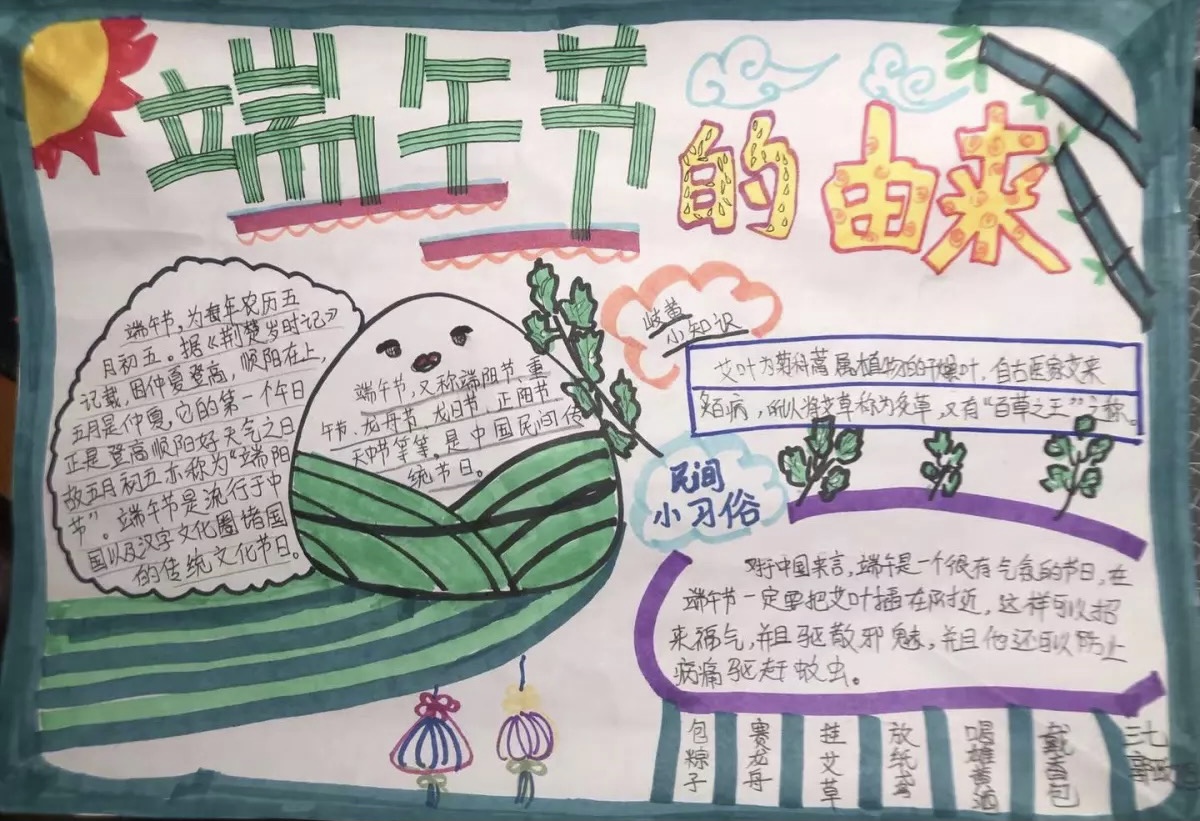 端午节的由来
端午节,为每年农历五
月初五。据《荆楚岁时记》
记载,因仲夏登高,顺阳在上,
五月是仲夏,它的第一个午日
正是登高顺阳好天气之日
故五月初五亦称为“端阳
节”。端午节是流行于中
国以及汉字文化圈诸国
的传统文化节日。
端午节,又称端阳节,重
午节、龙舟节、龙日节、正阳节
天中节等等。是中国民间传
统节日。
岐黄
小知识
艾叶为菊科蒿属植物的干燥叶,自古医家艾来
灸百病,所以将艾草称为灸草,又有“百草之王”之称。
民间
小习俗
对于中国来言,端午是一个很有气氛的节日,在
端午节一定要把艾叶插在附近,这样可以招
来福气,并且驱散邪魅,并且他还可以防止
病痛驱赶蚊虫。
包粽子
赛龙舟
挂艾草
放纸鸢
喝雄黄酒
戴香包
三七